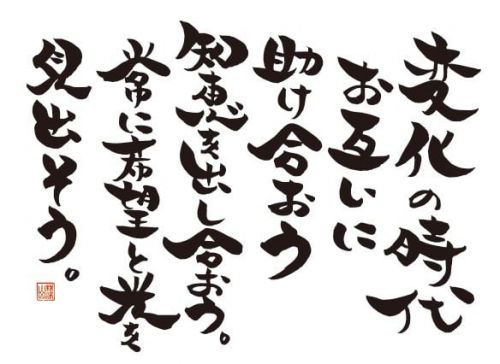 変化の時代
お互いに
助け合おう
知恵を出し合おう。
常に希望と光を
見出そう。